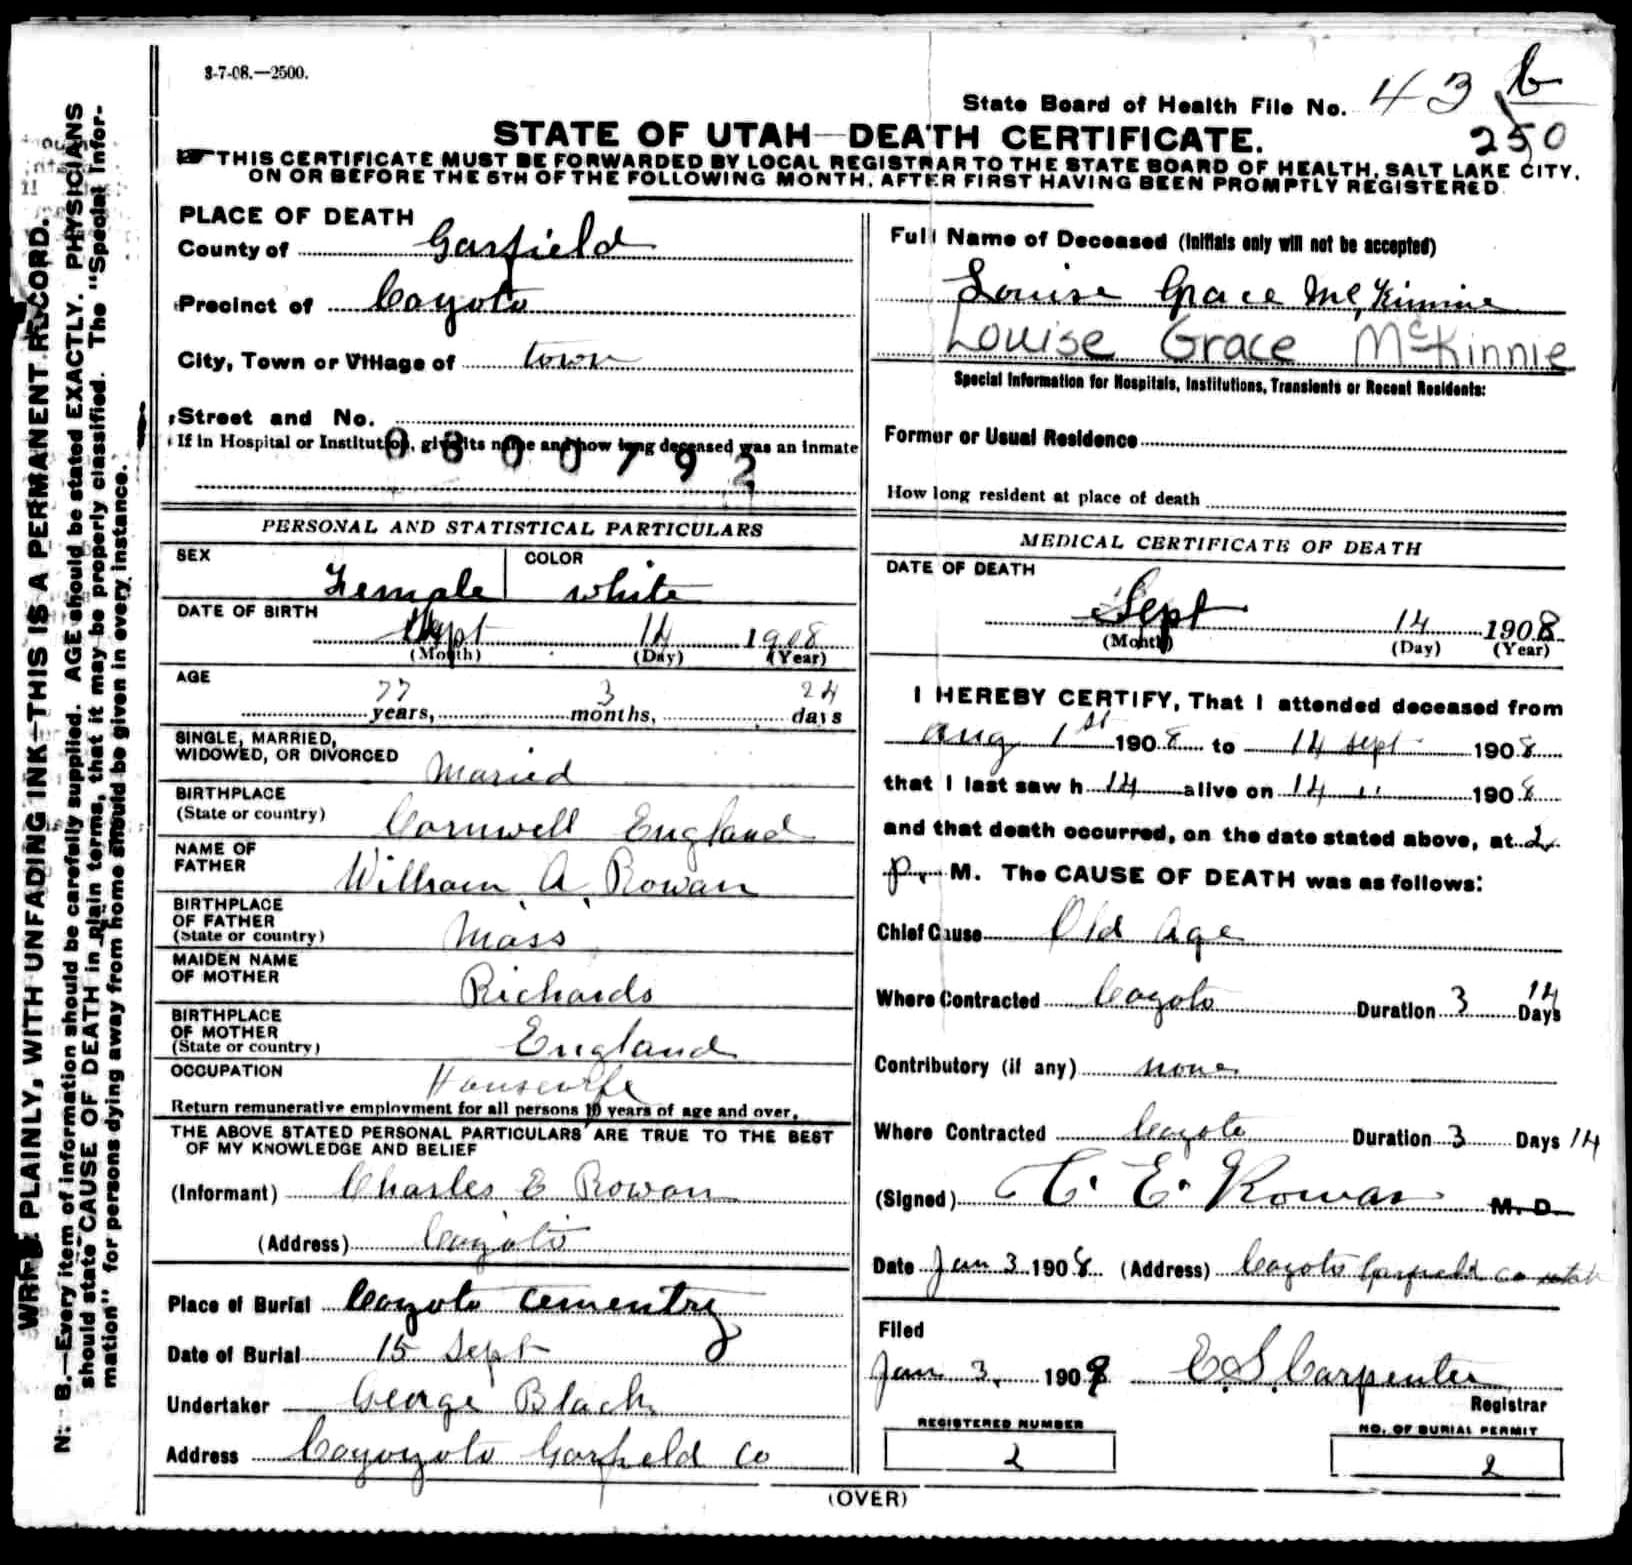 3-7-08.—2500.
State Board of Health File No. 43 b
250
STATE OF UTAH—DEATH CERTIFICATE.
THIS CERTIFICATE MUST BE FORWARDED BY LOCAL REGISTRAR TO THE STATE BOARD OF HEALTH, SALT LAKE CITY,
ON OR BEFORE THE 5TH OF THE FOLLOWING MONTH, AFTER FIRST HAVING BEEN PROMPTLY REGISTERED.
WRITE PLAINLY, WITH UNFADING INK—THIS IS A PERMANENT RECORD.
N. B.—Every item of information should be carefully supplied. AGE should be stated EXACTLY. PHYSICIANS
should state CAUSE OF DEATH in plain terms, that it may be properly classified. The "Special Infor-
mation" for persons dying away from home should be given in every instance.
PLACE OF DEATH
County of Garfield
Precinct of Coyoto
City, Town or Village of town
Street and No.
If in Hospital or Institution, give its name and how long deceased was an inmate
0800792
PERSONAL AND STATISTICAL PARTICULARS
SEX Female COLOR white
DATE OF BIRTH
Sept 14 1908
(Month) (Day) (Year)
AGE
77 years, 3 months, 24 days
SINGLE, MARRIED,
WIDOWED, OR DIVORCED Maried
BIRTHPLACE
(State or country) Cornwell England
NAME OF
FATHER William A. Rowan
BIRTHPLACE
OF FATHER
(State or country) Mass
MAIDEN NAME
OF MOTHER Richards
BIRTHPLACE
OF MOTHER
(State or country) England
OCCUPATION Housewife
Return remunerative employment for all persons 10 years of age and over.
THE ABOVE STATED PERSONAL PARTICULARS ARE TRUE TO THE BEST
OF MY KNOWLEDGE AND BELIEF
(Informant) Charles E Rowan
(Address) Coyoto
Place of Burial Coyoto Cementry
Date of Burial 15 Sept
Undertaker George Black
Address Coyoyoto Garfield Co
Full Name of Deceased (Initials only will not be accepted)
Louise Grace McKinnie
Louise Grace McKinnie
Special Information for Hospitals, Institutions, Transients or Recent Residents:
Former or Usual Residence
How long resident at place of death
MEDICAL CERTIFICATE OF DEATH
DATE OF DEATH
Sept 14 1908
(Month) (Day) (Year)
I HEREBY CERTIFY, That I attended deceased from
Aug 1st 1908 to 14 sept 1908
that I last saw h 14 alive on 14 " 1908
and that death occurred, on the date stated above, at 2
P. M. The CAUSE OF DEATH was as follows:
Chief Cause Old Age
Where Contracted Coyoto Duration 3 14 Days
Contributory (if any) none
Where Contracted Coyoto Duration 3 Days 14
(Signed) C. E. Rowan M. D.
Date Jan 3 1908 (Address) Coyoto Garfield Co utah
Filed
Jan 3, 1909 E. S. Carpenter
Registrar
REGISTERED NUMBER
2
NO. OF BURIAL PERMIT
2
(OVER)